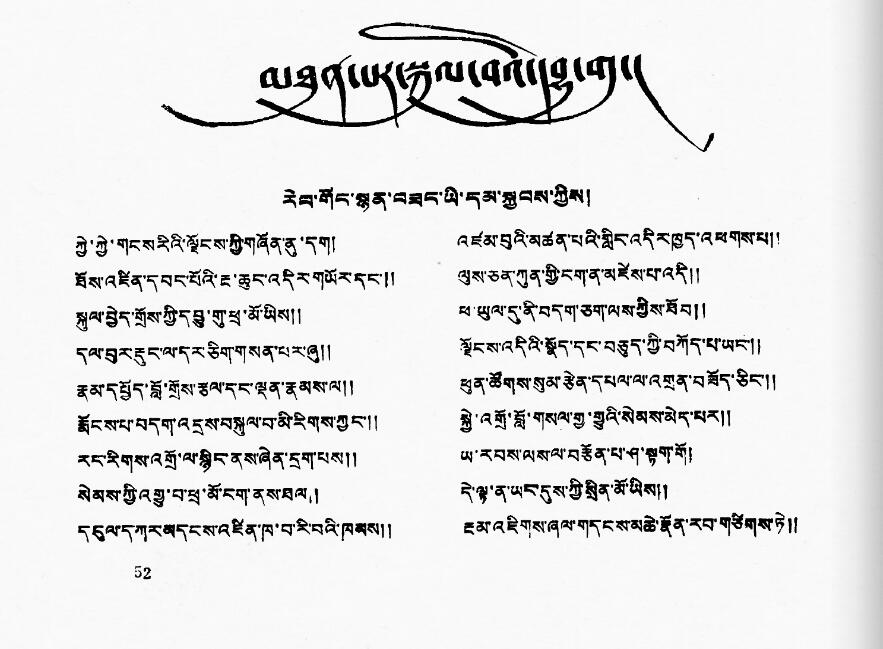 རེབ་གོང་སྙན་བཟང་ཡི་དམ་སྐྱབས་ཀྱིས།
ཀྱེ་ཀྱེ་གངས་རིའི་ལྗོངས་ཀྱི་གཞོན་ནུ་དག།
ཐོས་འཛིན་དབང་པོའི་རྔ་ཆུང་འདིར་གཡོར་དང་།།
སྐུལ་བྱེད་གྲོས་ཀྱི་དབྱུ་གུ་ཕྲ་མོ་ཡིས།།
དལ་བུར་རྡུང་ལ་དར་ཅིག་གསན་པར་ཞུ།།
རྣམ་དཔྱོད་བློ་གྲོས་རྩལ་དང་ལྡན་རྣམས་ལ།།
རྨོངས་པ་བདག་འདྲས་བསྐུལ་བ་མི་རིགས་ཀྱང་།།
རང་རིགས་འགྲོ་ལ་སྙིང་ནས་ཞེན་དྲག་པས།།
སེམས་ཀྱི་འགྱུ་བ་ཕྲ་མོ་ངག་ནས་ཐལ།།
དངུལ་དཀར་མདངས་འཛིན་ཁ་བ་རི་བའི་ཁམས།།
འཛམ་བུའི་མཚན་པའི་གླིང་འདིར་ཁྱད་འཕགས་པ།།
ལུས་ཅན་ཀུན་གྱི་ངག་ན་མཛེས་པ་འདི།།
ཕ་ཡུལ་དུ་ནི་བདག་ཅག་ལས་ཀྱིས་ཐོབ།།
ལྗོངས་འདིའི་སྣོད་དང་བཅུད་ཀྱི་བཀོད་པ་ཡང་།།
ཕུན་ཚོགས་སུམ་རྩེན་དཔལ་ལ་འགྲན་བཟོད་ཅིང་།།
སྐྱེ་འགྲོ་བློ་གསལ་གྱ་གྱུའི་སེམས་མེད་པར།།
ཡ་རབས་ལས་ལ་བརྩོན་པ་ཤ་སྟག་གོ།
དེ་ལྟ་ན་ཡང་དུས་ཀྱི་སྲིན་མོ་ཡིས།།
རྔམ་འཇིགས་ཞལ་གདངས་མཆེ་རྣོན་རབ་གཙིགས་ཏེ།།
52